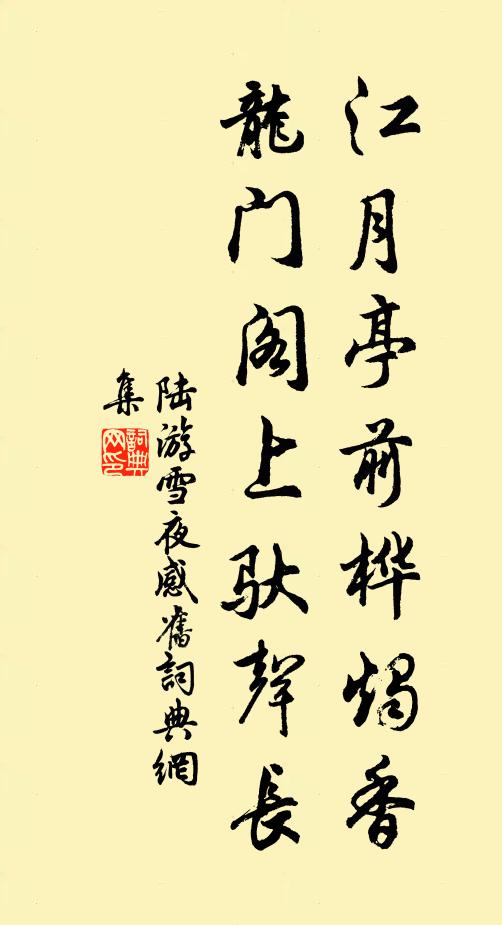 江月亭前桦燭香
龍门阁上馱聲長
陆游雪夜感舊詞典網
集
詞典
网印